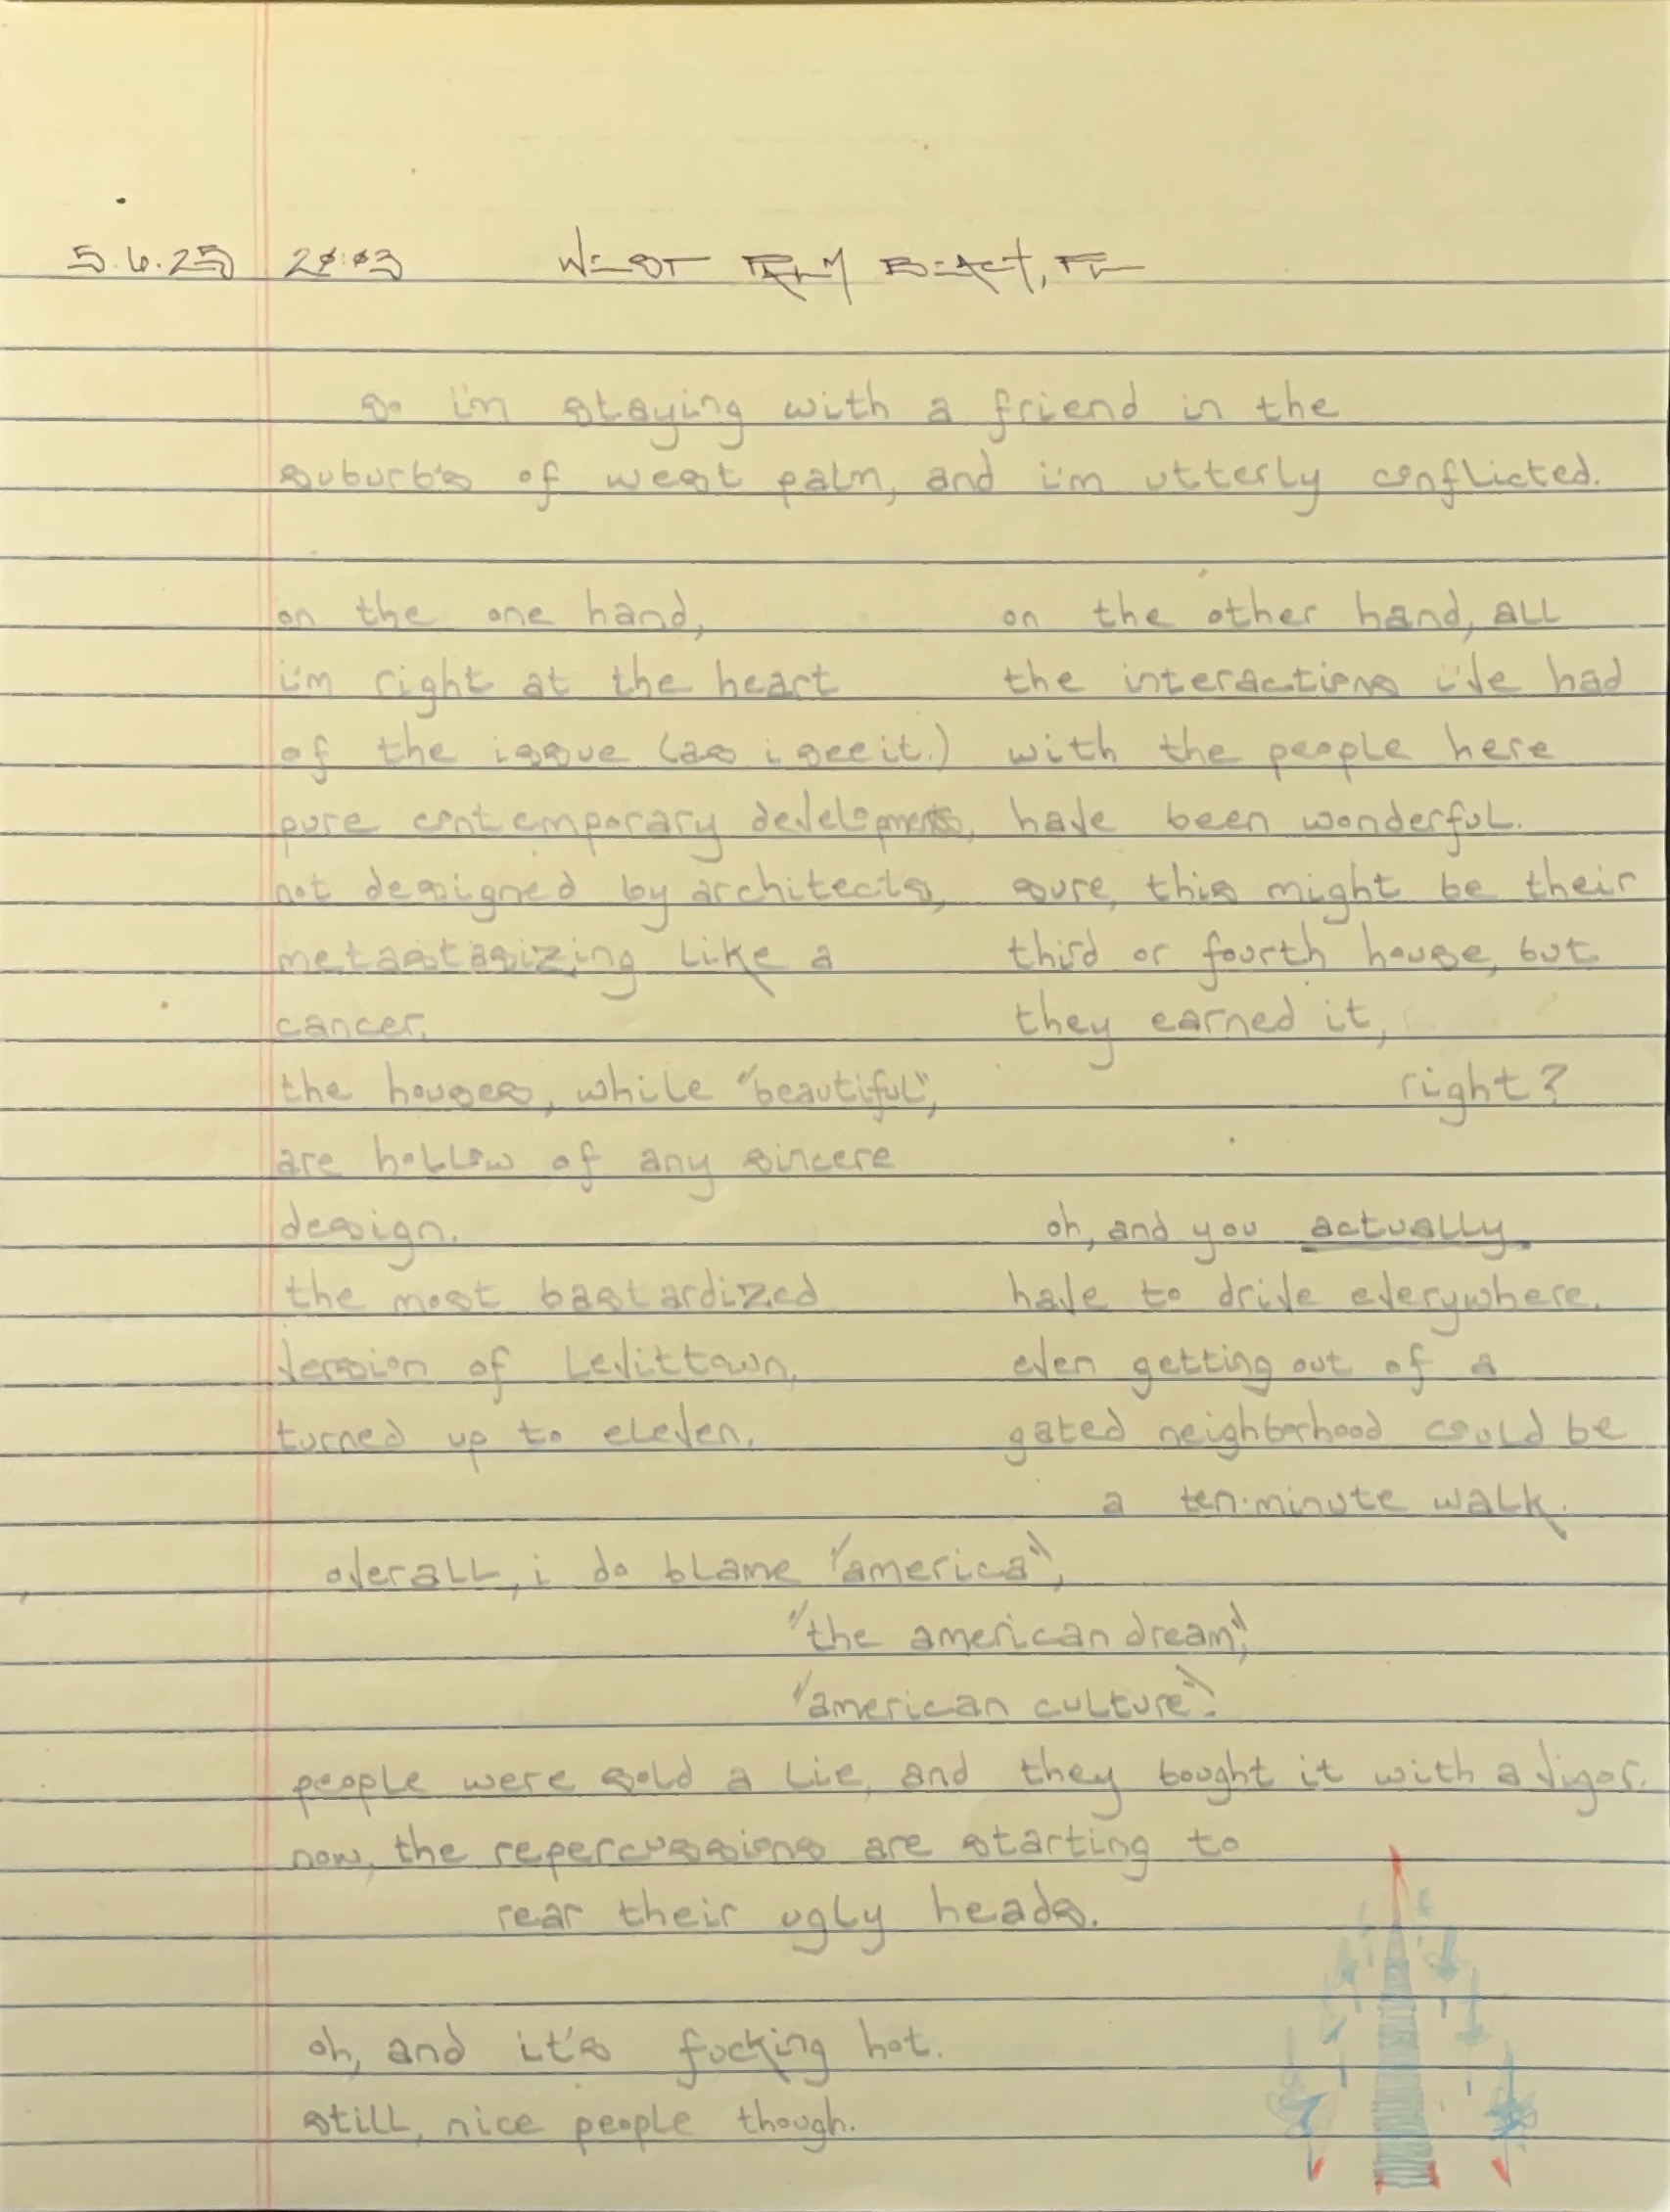 5.6.25 20:03 WEST PALM BEACH, FL
so i'm staying with a friend in the
suburb's of west palm, and i'm utterly conflicted.
on the one hand,
i'm right at the heart
of the issue (as i see it.)
pure contemporary developments,
not designed by architects,
metastasizing like a
cancer.
the houses, while "beautiful",
are hollow of any sincere
design.
the most bastardized
version of Levittown,
turned up to eleven.
on the other hand, all
the interactions i've had
with the people here
have been wonderful.
sure, this might be their
third or fourth house, but
they earned it,
right?
oh, and you actually
have to drive everywhere.
even getting out of a
gated neighborhood could be
a ten-minute walk.
overall, i do blame "america",
"the american dream",
"american culture".
people were sold a lie, and they bought it with a vigor.
now, the repercussions are starting to
rear their ugly heads.
oh, and it's fucking hot.
still, nice people though.